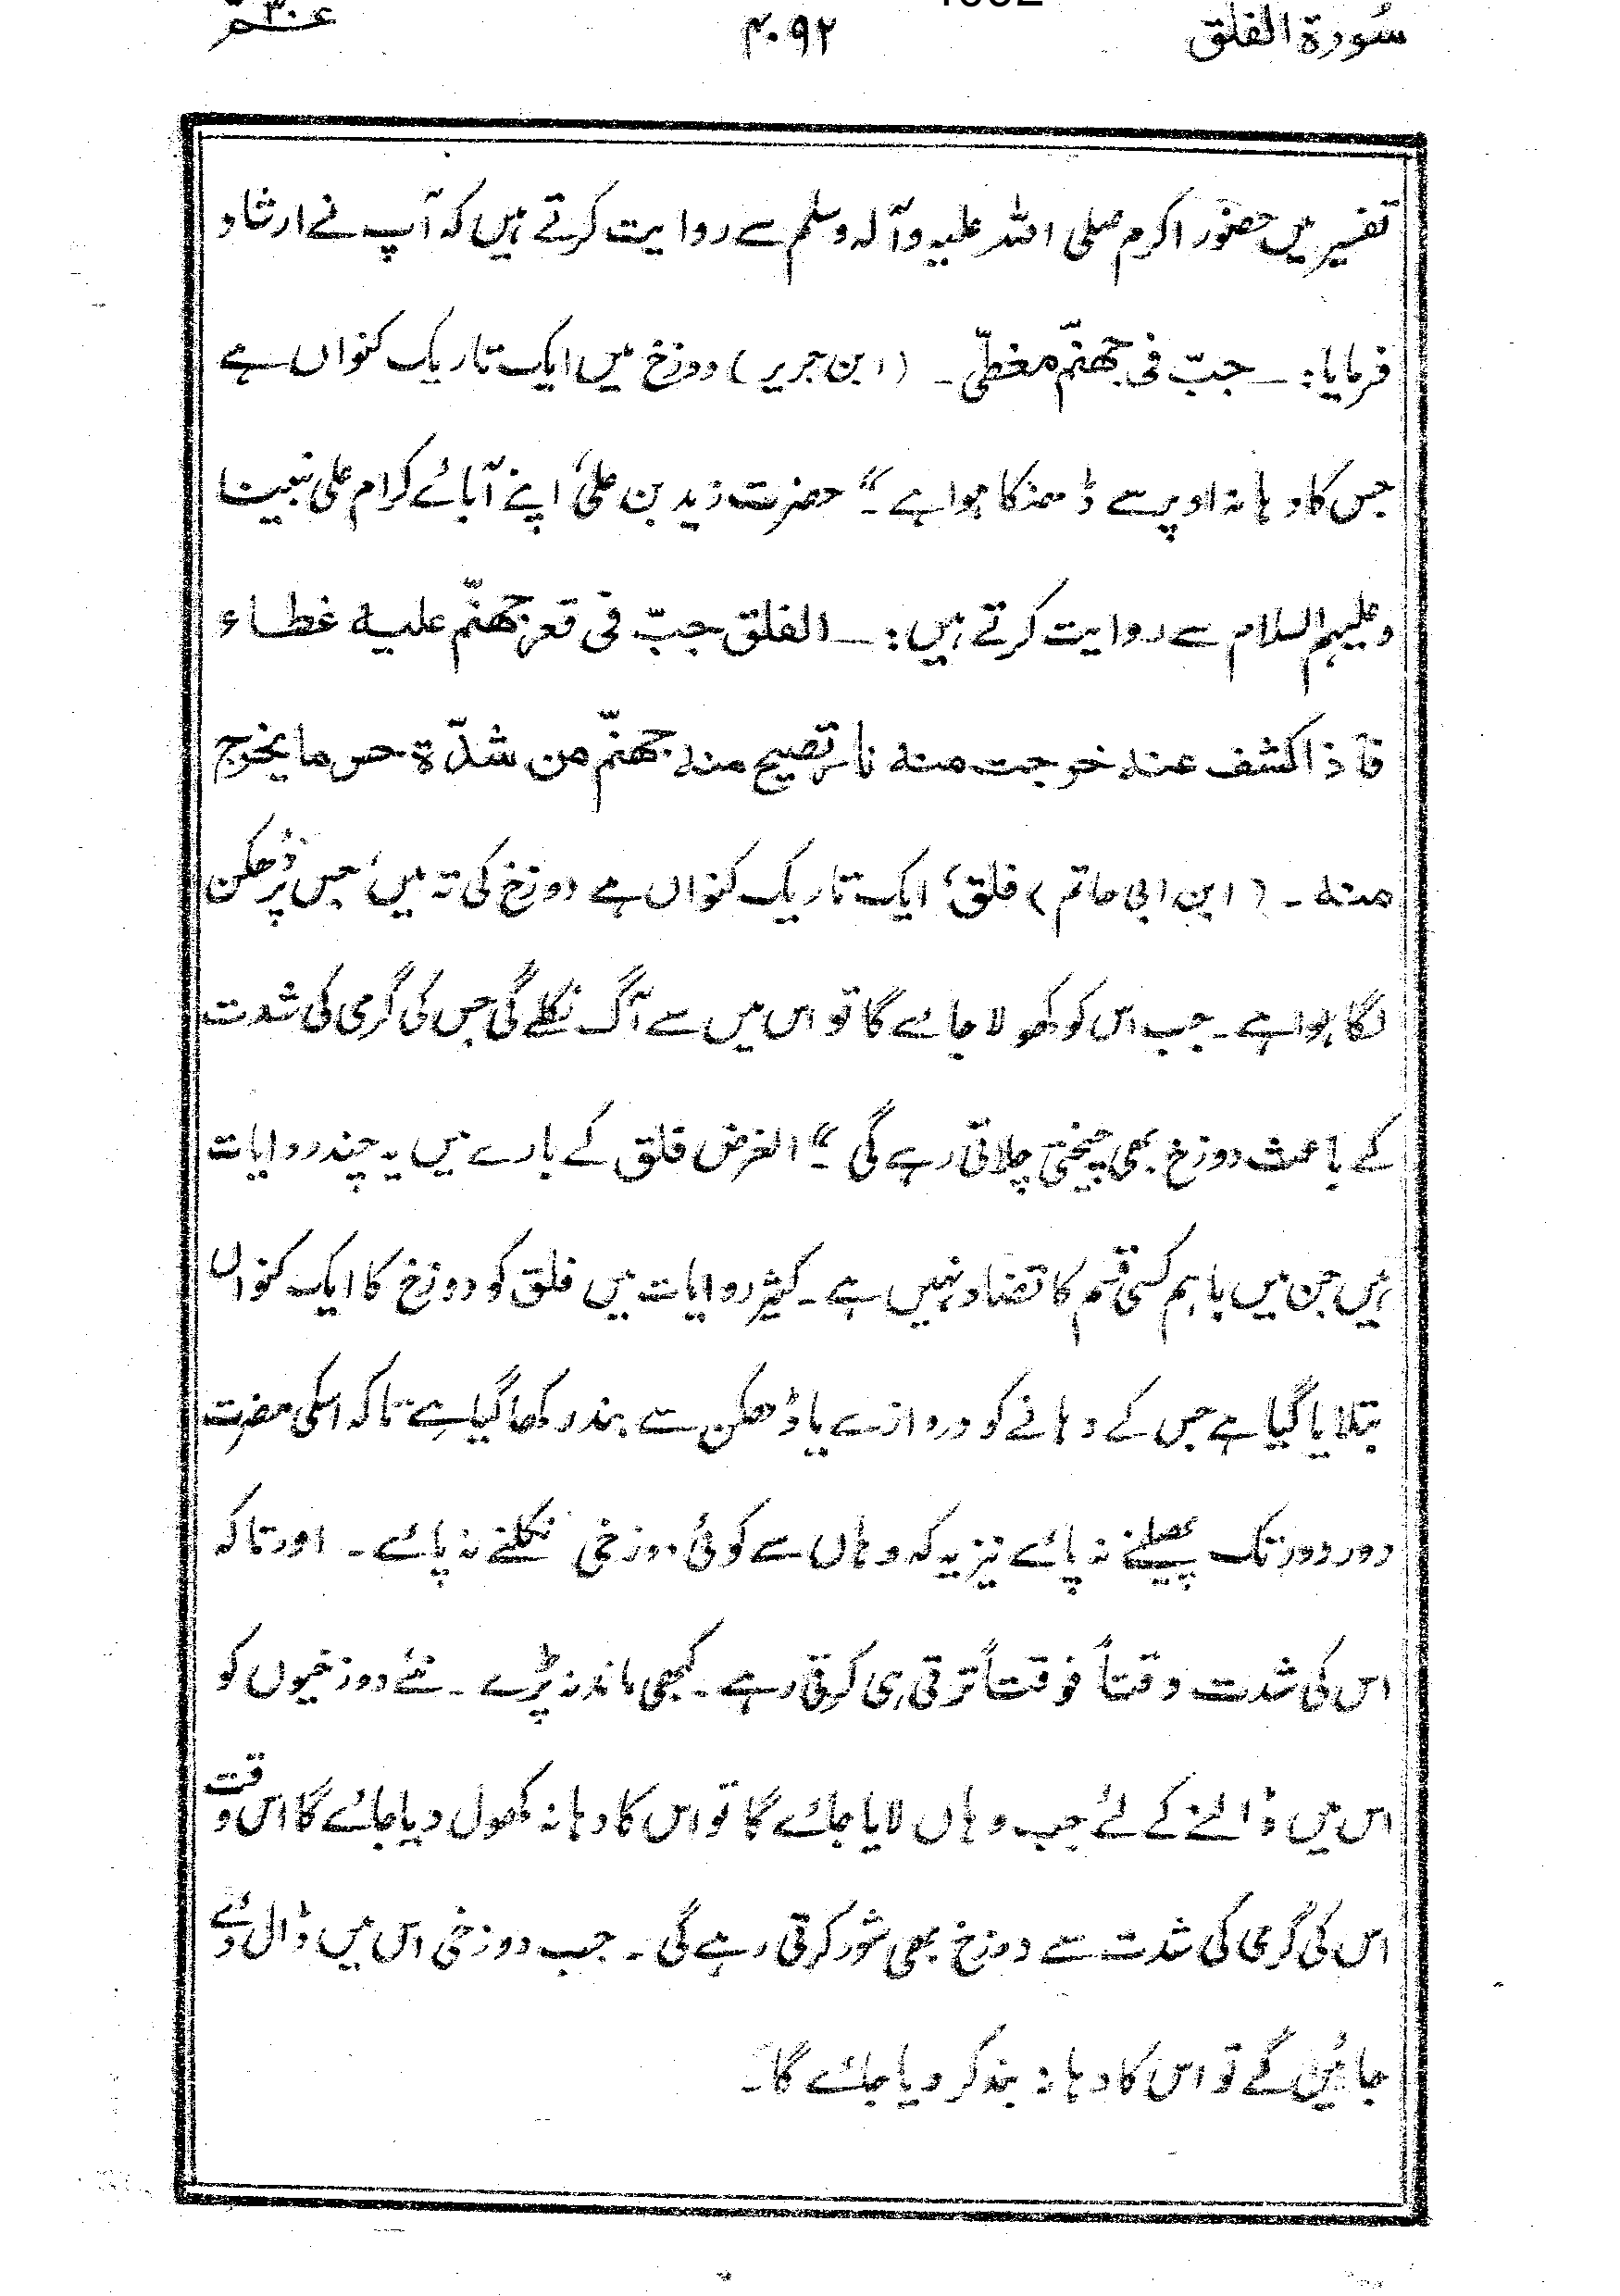 سُورة الفلق ۴۰۹۲ عـــم ۳۰
تفسیر میں حضور اکرم صلی اللہ علیہ وآلہ وسلم سے روایت کرتے ہیں کہ آپ نے ارشاد
فرمایا:۔ جبّ فی جھنّم مغطّی۔ (ابن جریر) دوزخ میں ایک تاریک کنواں ہے
جس کا دہانہ اوپر سے ڈھنکا ہوا ہے۔" حضرت زید بن علیؑ اپنے آبائے کرام علی نبینا
وعلیہم السلام سے روایت کرتے ہیں:۔ الفلق جبّ فی قعر جھنّم علیه غطاء
فأذا کشف عنه خرجت منه نار تصیح منه جھنّم من شدّة حس ما یخرج
منه۔ (ابن ابی حاتم) فلق، ایک تاریک کنواں ہے دوزخ کی تہ میں، جس پر ڈھکن
لگا ہوا ہے۔ جب اس کو کھولا جائے گا تو اس میں سے آگ نکلے گی جس کی گرمی کی شدت
کے باعث دوزخ بھی چیختی چلاتی رہے گی۔" الغرض فلق کے بارے میں یہ چند روایات
ہیں جن میں باہم کسی قسم کا تضاد نہیں ہے۔ کثیر روایات میں فلق کو دوزخ کا ایک کنواں
بتلایا گیا ہے جس کے دہانے کو دروازے یا ڈھکن سے بند رکھا گیا ہے تاکہ اسکی مضرت
دور دور تک پھیلنے نہ پائے نیز یہ کہ وہاں سے کوئی دوزخی نکلنے نہ پائے۔ اور تاکہ
اس کی شدت وقتاً فوقتاً ترقی ہی کرتی رہے۔ کبھی ماند نہ پڑے۔ نئے دوزخیوں کو
اس میں ڈالنے کے لئے جب وہاں لایا جائے گا تو اس کا دہانہ کھول دیا جائے گا اس وقت
اس کی گرمی کی شدت سے دوزخ بھی شور کرتی رہے گی۔ جب دوزخی اس میں ڈال دئے
جائیں گے تو اس کا دہانہ بند کر دیا جائے گا۔